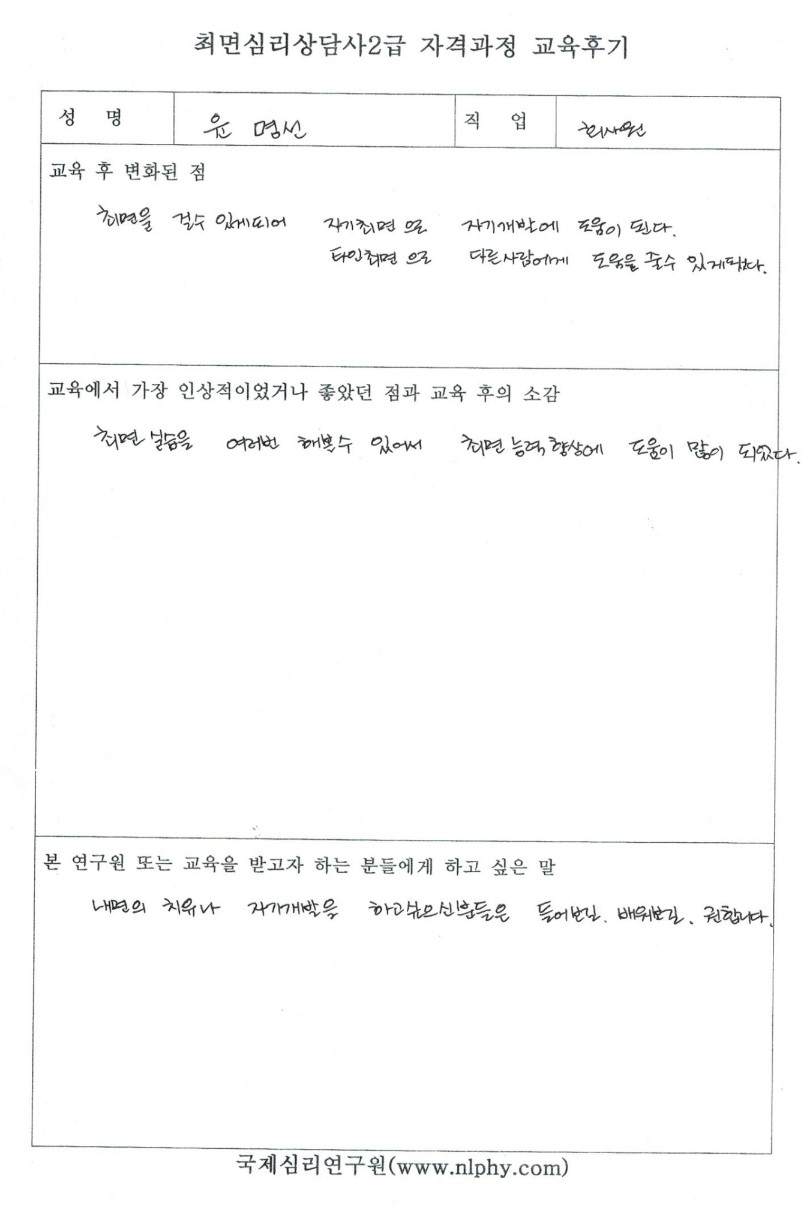 최면심리상담사2급 자격과정 교육후기
성 명 윤 명선 직 업 회사원
교육 후 변화된 점
최면을 걸수 있게되어 자기최면 으로 자기개발에 도움이 된다.
타인최면 으로 다른사람에게 도움을 줄수 있게되었다.
교육에서 가장 인상적이었거나 좋았던 점과 교육 후의 소감
최면 실습을 여러번 해볼수 있어서 최면 능력 향상에 도움이 많이 되었다.
본 연구원 또는 교육을 받고자 하는 분들에게 하고 싶은 말
내면의 치유나 자기개발을 하고싶으신분들은 들어보길. 배워보길. 권합니다.
국제심리연구원(www.nlphy.com)